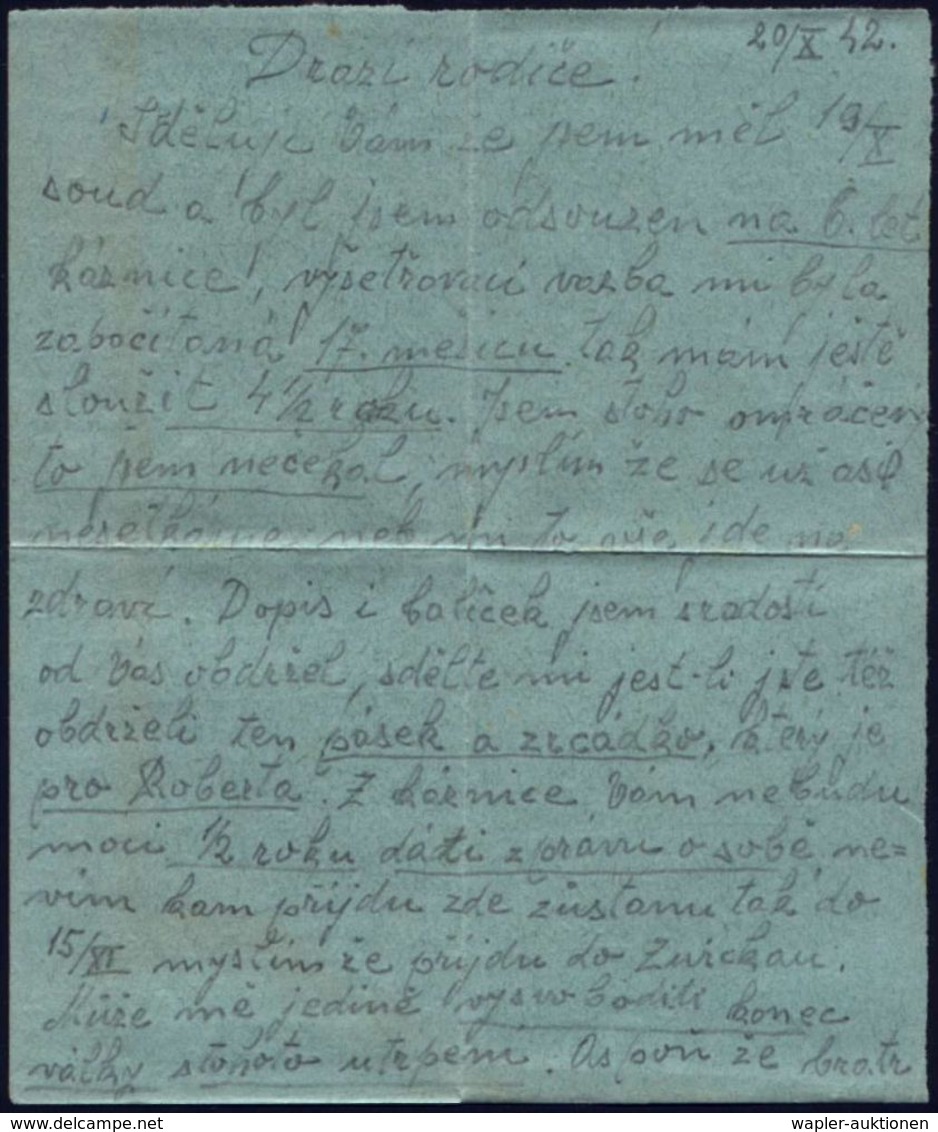 20/X 42.
Drazí rodiče!
Sděluji Vám že jsem měl 19/X
soud a byl jsem odsouzen na 6. let
káznice!, vyšetřovací vazba mi byla
započítaná 17. měsicu tak mám ještě
sloužit 4 1/2 roku. Jsem stoho omráčený
to jsem nečekal, myslím že se už asi
nesetkáme neb mi to vše jde na
zdraví. Dopis i balíček jsem sradostí
od Vás obdržel, sdělte mi jest-li jste též
obdrželi ten pásek a zrcádko, který je
pro Roberta. Z káznice Vám nebudu
moci 1/2 roku dáti zprávu o sobě, ne=
vím kam příjdu zde zůstanu tak do
15/XI myslím že příjdu do Zwickau.
Může mě jedině vysvoboditi konec
války stohoto utrpení. Aspoň že bratr
wapler-auktionen